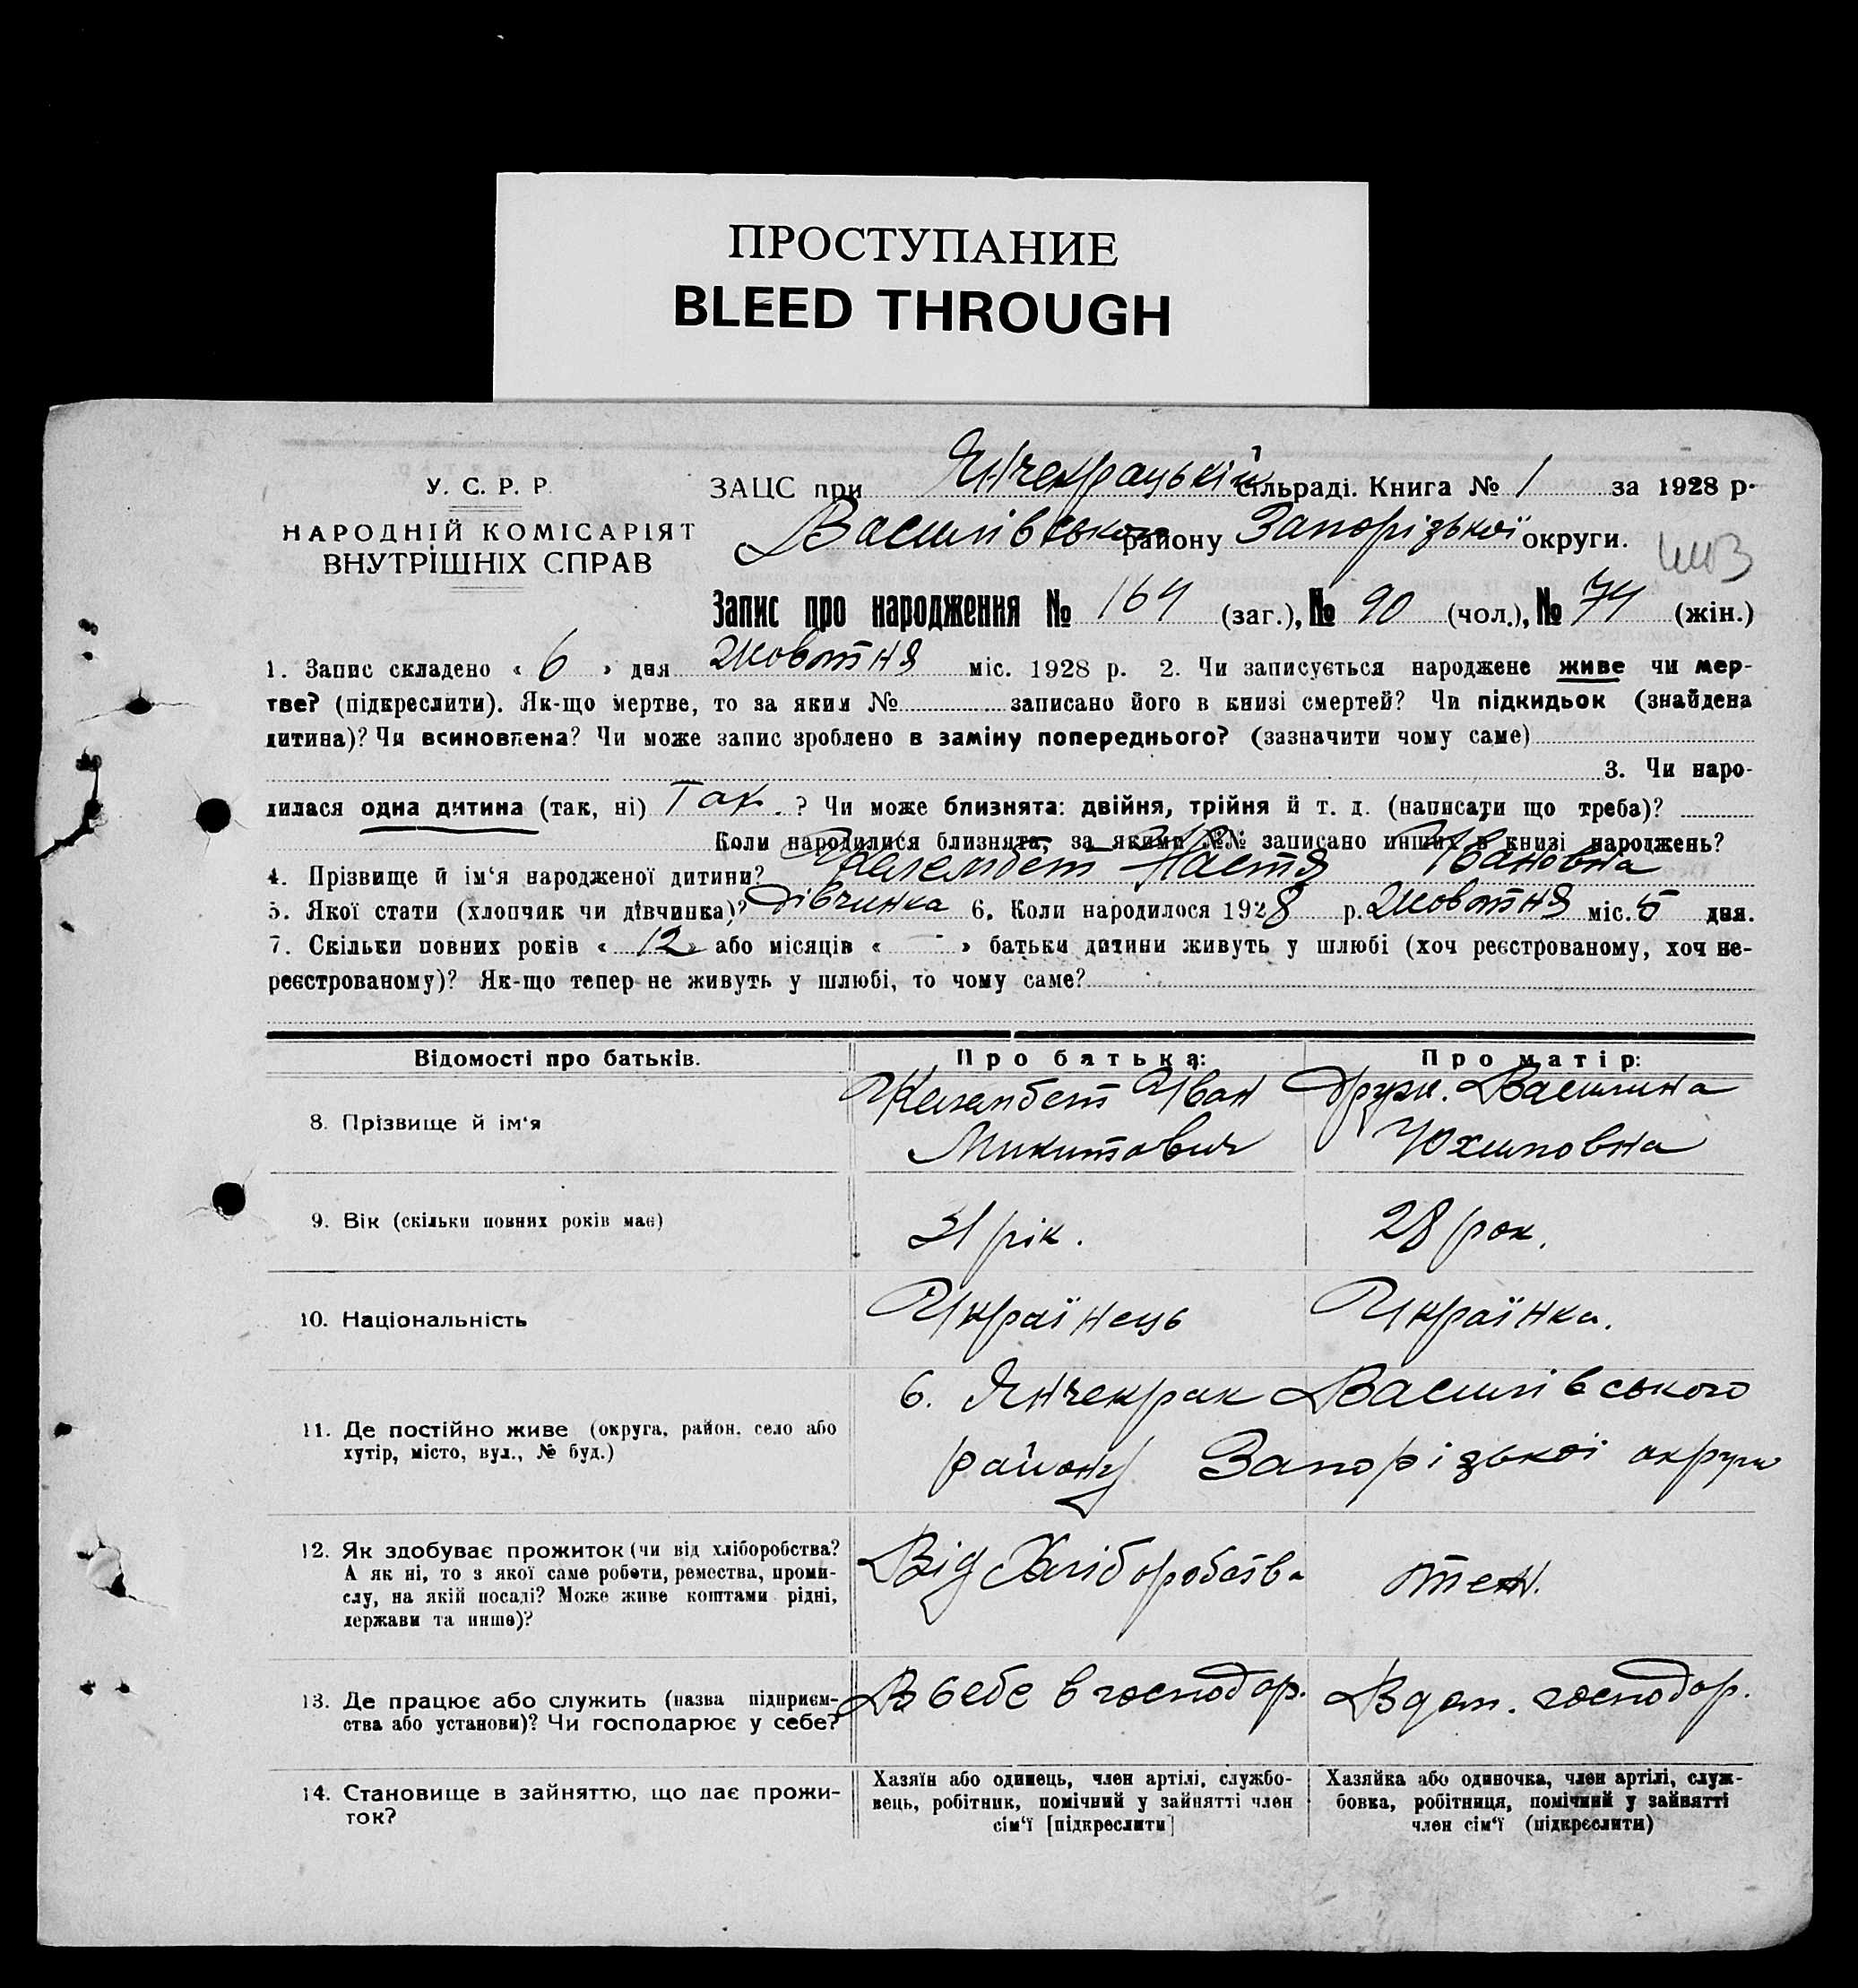 ПРОСТУПАНИЕ
BLEED THROUGH
У. С. Р. Р.
НАРОДНІЙ КОМІСАРІЯТ
ВНУТРІШНІХ СПРАВ
ЗАЦС при Янчекрацькій сільраді. Книга № 1 за 1928 р.
Василівського району Запорізької округи.
Запис про народження № 164 (заг.), № 90 (чол.), № 74 (жін.)
1. Запис складено « 6 » дня Жовтня міс. 1928 р. 2. Чи записується народжене живе чи мер-
тве? (підкреслити). Як-що мертве, то за яким № записано його в книзі смертей? Чи підкидьок (знайдена
дитина)? Чи всиновлена? Чи може запис зроблено в заміну попереднього? (зазначити чому саме)
3. Чи наро-
дилася одна дитина (так, ні) Так. ? Чи може близнята: двійня, трійня й т. д. (написати що треба)?
Коли народилися близнята, за якими №№ записано инших в книзі народжень?
4. Прізвище й ім‘я народженої дитини? Настя Івановна
5. Якої стати (хлопчик чи дівчинка)? Дівчинка 6. Коли народилося 1928 р. Жовтня міс. 5 дня.
7. Скільки повних років « 12 » або місяців « - » батьки дитини живуть у шлюбі (хоч реєстрованому, хоч не-
реєстрованому)? Як-що тепер не живуть у шлюбі, то чому саме?
Відомості про батьків. Про батька: Про матір:
8. Прізвище й ім‘я Іван Друж. Василина
Микитович Юхимовна
9. Вік (скільки повних років має) 31 рік. 28 рок.
10. Національність Українець Українка.
11. Де постійно живе (округа, район, село або
хутір, місто, вул., № буд.)
с. Янчекрак Василівського
району Запорізької округи
12. Як здобуває прожиток (чи від хліборобства?
А як ні, то з якої саме роботи, ремества, проми-
слу, на якій посаді? Може живе коштами рідні,
держави та инше)?
Від Хліборобства
13. Де працює або служить (назва підприєм-
ства або установи)? Чи господарює у себе?
В себе в господар. В дом. господар.
14. Становище в зайняттю, що дає прожи-
ток?
Хазяїн або одинець, член артілі, службо-
вець, робітник, помічний у зайнятті член
сім‘ї [підкреслити]
Хазяйка або одиночка, член артілі, служ-
бовка, робітниця, помічний у зайнятті
член сім‘ї (підкреслити)